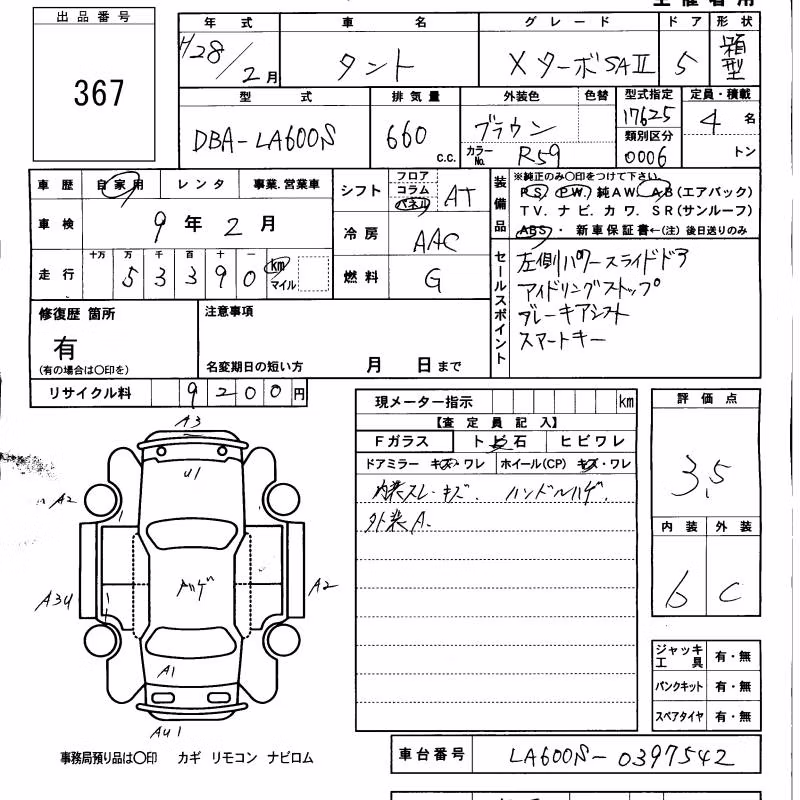 出品番号
367
年式 車名 グレード ドア 形状
H28/2月 タント XターボSAⅡ 5 箱型
型式 排気量 外装色 色替 型式指定 定員・積載
DBA-LA600S 660 C.C. ブラウン 17625 4名
カラーNo. R59 類別区分 0006 トン
車歴 自家用 レンタ 事業.営業車
車検 9年2月
走行 十万 万 千 百 十 一
5 3 3 9 0 km マイル
シフト フロア コラム パネル AT
冷房 AAC
燃料 G
装備品
※純正のみ〇印をつけて下さい
PS PW. 純AW. AB(エアバック)
TV. ナビ. カワ. SR(サンルーフ)
ABS・ 新車保証書←(注) 後日送りのみ
セールスポイント
左側パワースライドドア
アイドリングストップ
ブレーキアシスト
スマートキー
修復歴 箇所
有
(有の場合は〇印を)
注意事項
名変期日の短い方 月 日まで
リサイクル料 9 2 0 0 円
現メーター指示 km
【査定員記入】
Fガラス トビ石 ヒビワレ
ドアミラー キズ・ワレ ホイール(CP) キズ・ワレ
内装スレ・キズ. ハンドルハゲ.
外装A.
評価点
3.5
内装 外装
b C
ジャッキ工具 有・無
パンクキット 有・無
スペアタイヤ 有・無
A3
U1
A2
A3U
A2
A1
AU1
事務局預り品は〇印 カギ リモコン ナビロム
車台番号 LA600S-0397542